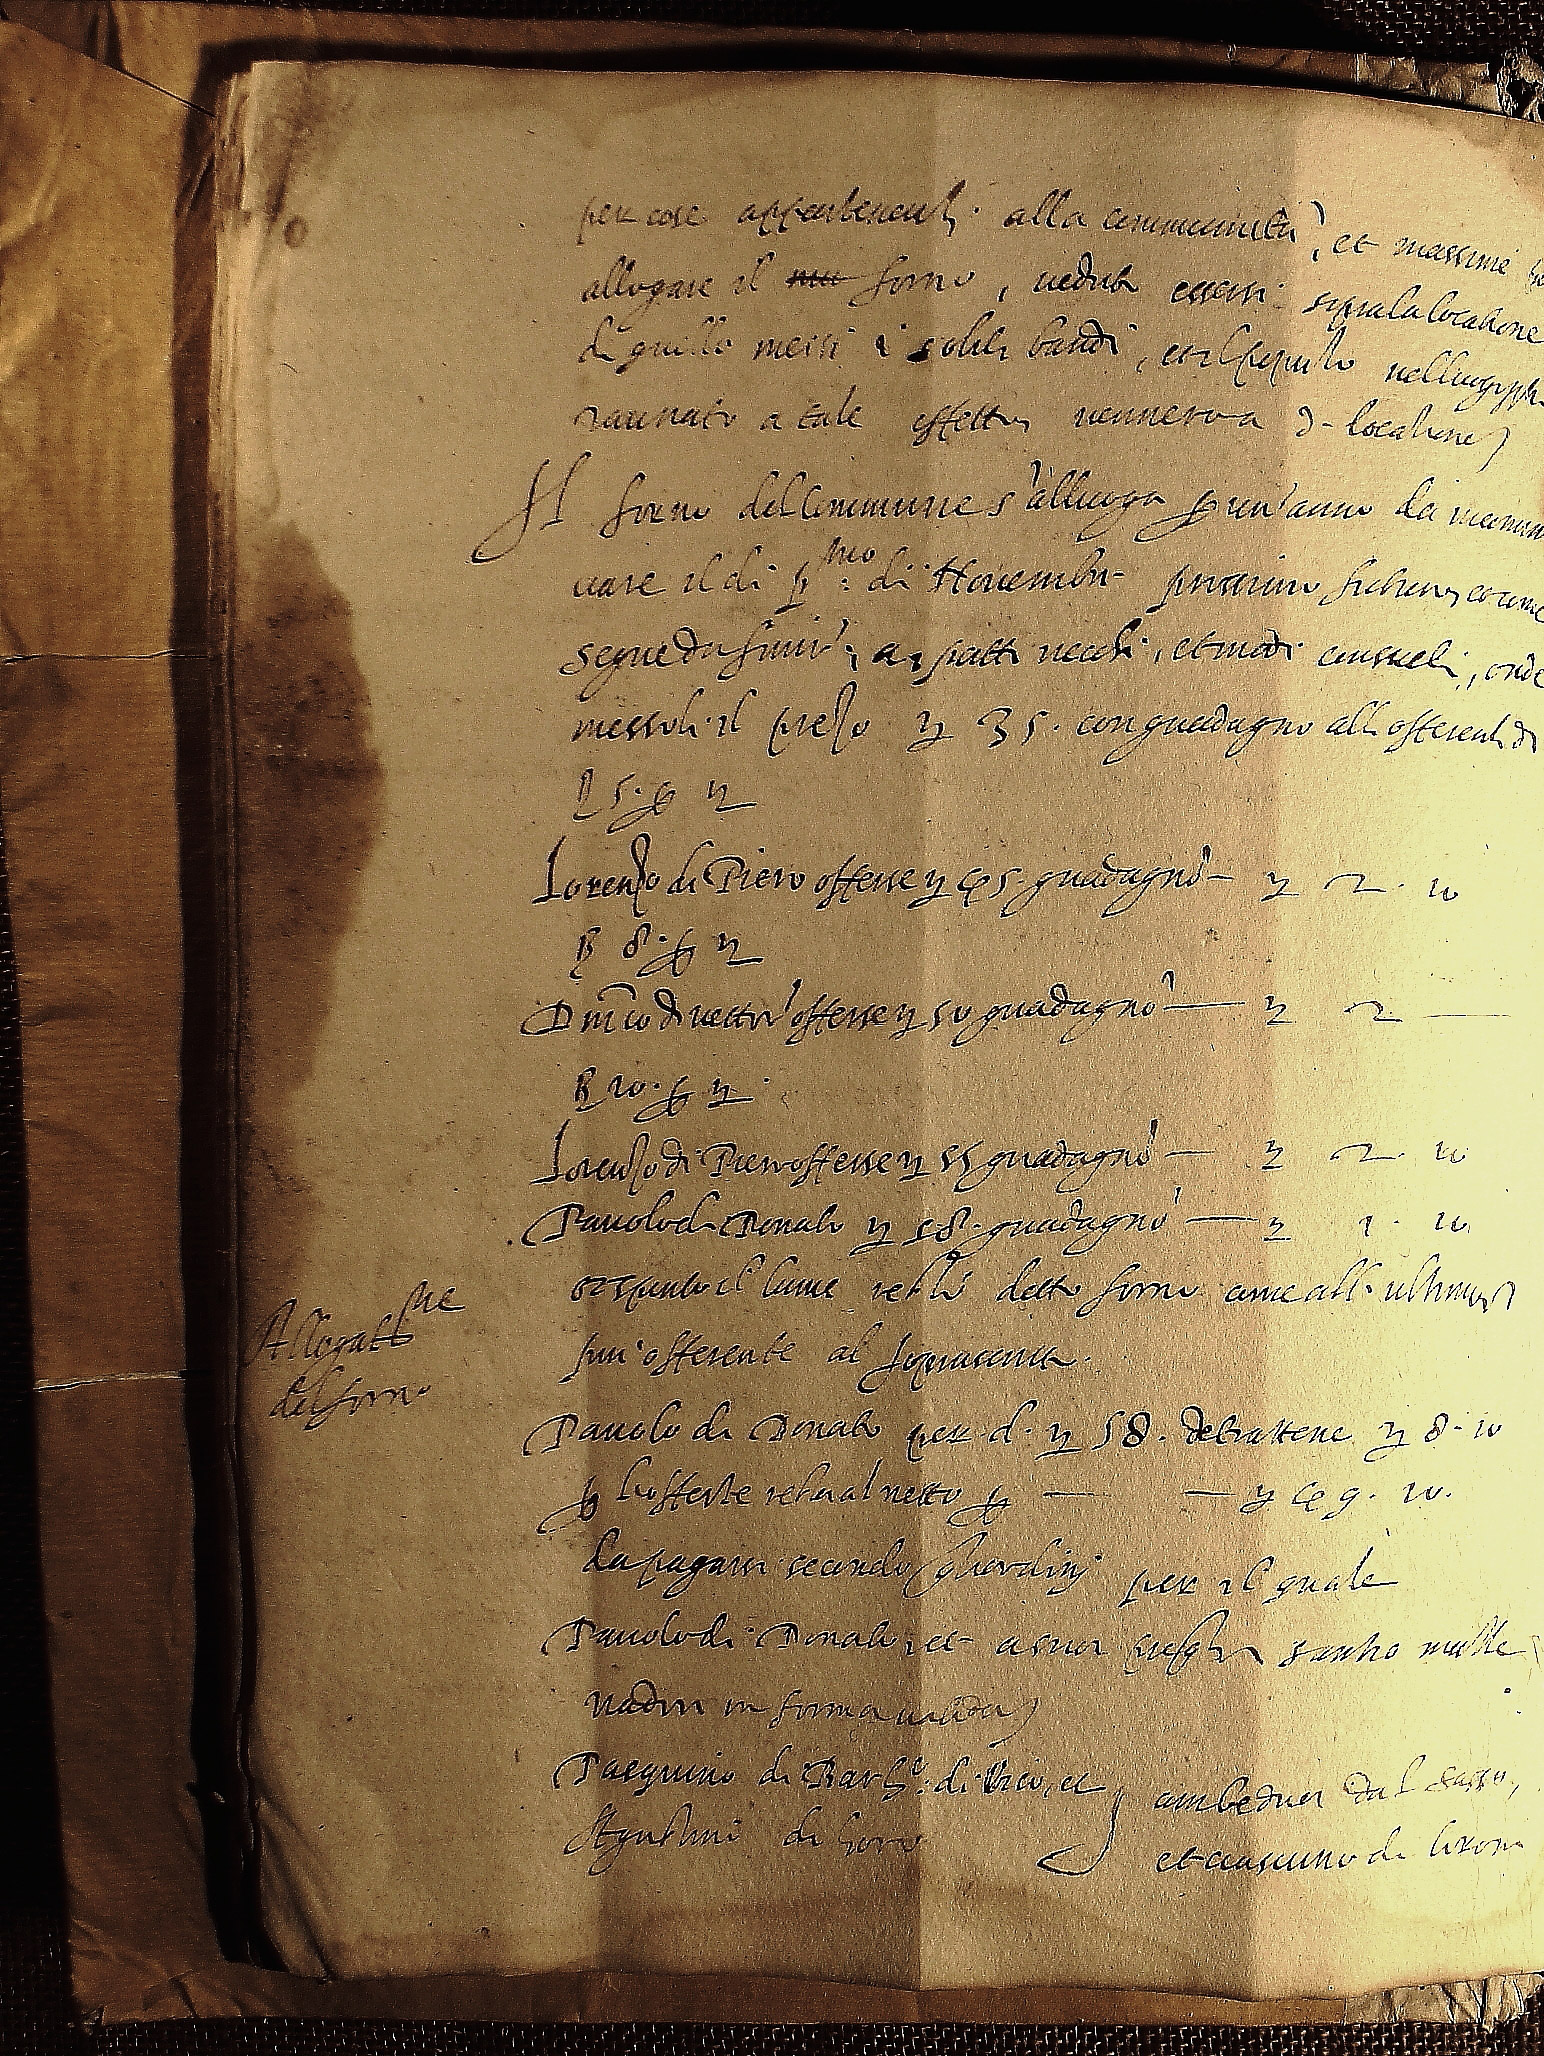 per cose appartenenti alla communità, et massime
allogare il forno, veduti essersi sopra la locatione
di quello messi i soliti bandi, et il popolo
raunato a tale effetto vennero a d. locatione
Il forno del Commune s'alluoga p un'anno da incomin
ciare il di p.mo di Novembre prossimo futuro, et come
segue da finir; a patti vecchi, et modi consueti, onde
messoli il prezo 35. con guadagno all offerenti di
5. p
Lorenzo di Piero offerse 45 guadagnò — 2. 10
8. p
Dm̃co di offerse 50 guadagnò — 2 —
10. p
Lorenzo di Piero offerse 55 guadagnò — 2. 10
Pauolo di Donato 58. guadagnò — 1. 10
et spento il lume restò detto forno come all ultimo
piu offerente al
Allogatne
del forno
Pauolo di Donato per d. 58. detrattene 8. 10
p l'offerte resta al netto p — — 49. 10.
da pagarsi secondo gli ordini per il quale
Pauolo di Donato, et
in forma valida
Pasquino di Bart.o di, et ambeduei dal Sasso,
Agustino di et ciascuno di loro